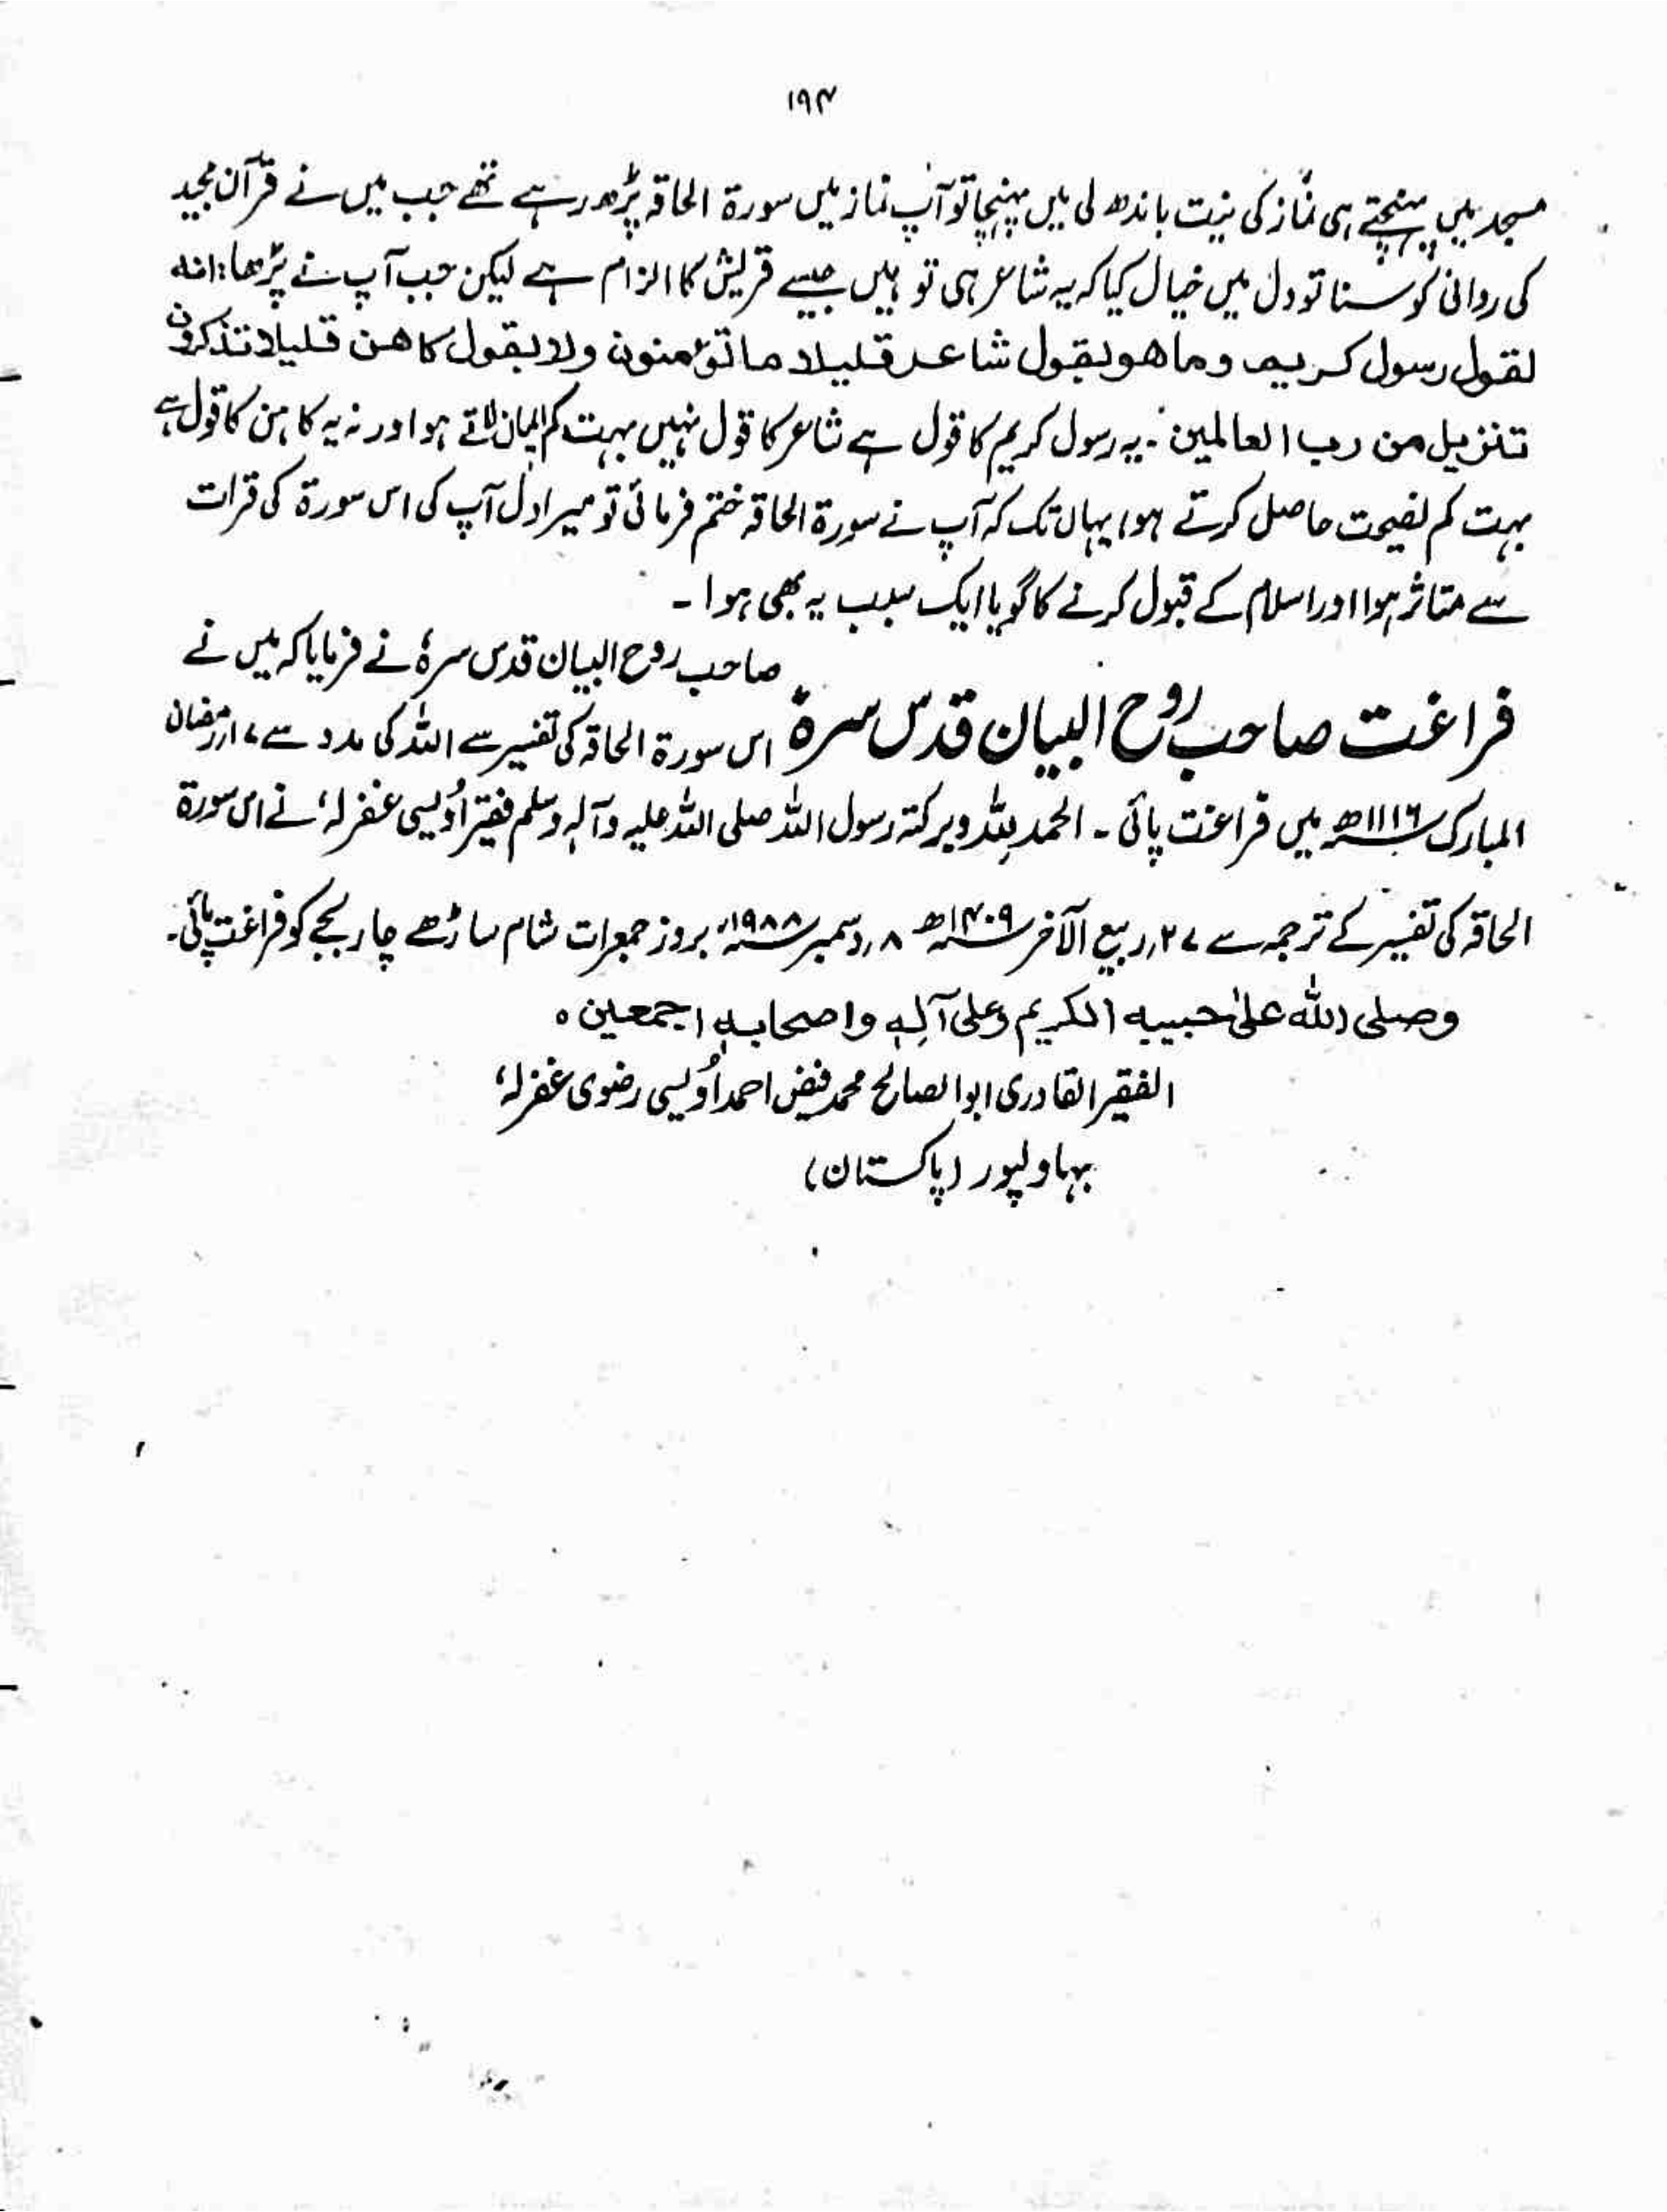 ۱۹۴
مسجد میں پہنچتے ہی نماز کی نیت باندھ لی میں پہنچا تو آپ نماز میں سورۃ الحاقہ پڑھ رہے تھے جب میں نے قرآن مجید
کی روانی کو سنا تو دل میں خیال کیا کہ یہ شاعر ہی تو ہیں جیسے قریش کا الزام ہے لیکن جب آپ نے پڑھا: انہ
لقول رسول کریم وما ھو بقول شاعر قلیلا ما تؤمنون ولا بقول کاھن قلیلا تذکرون
تنزیل من رب العالمین ۔ یہ رسول کریم کا قول ہے شاعر کا قول نہیں بہت کم ایمان لاتے ہو اور نہ یہ کاہن کا قول ہے
بہت کم نصیحت حاصل کرتے ہو، یہاں تک کہ آپ نے سورۃ الحاقہ ختم فرمائی تو میرا دل آپ کی اس سورۃ کی قرات
سے متاثر ہوا اور اسلام کے قبول کرنے کا گویا ایک سبب یہ بھی ہوا ۔
فراغت صاحب روح البیان قدس سرہٗ
صاحب روح البیان قدس سرہٗ نے فرمایا کہ میں نے
اس سورۃ الحاقہ کی تفسیر سے اللہ کی مدد سے ۱۷ رمضان
المبارک ۱۱۱۶ھ میں فراغت پائی ۔ الحمد للہ وبرکتہ رسول اللہ صلی اللہ علیہ وآلہٖ وسلم فقیر اُویسی غفرلہٗ نے اس سورۃ
الحاقہ کی تفسیر کے ترجمہ سے ۲۷ ربیع الآخر ۱۴۰۹ھ ۸ دسمبر ۱۹۸۸ء بروز جمعرات شام ساڑھے چار بجے کو فراغت پائی۔
وصلی اللہ علیٰ حبیبہ الکریم وعلیٰ آلہٖ واصحابہٖ اجمعین ہ
الفقیر القادری ابو الصالح محمد فیض احمد اُویسی رضوی غفرلہٗ
بہاولپور (پاکستان)